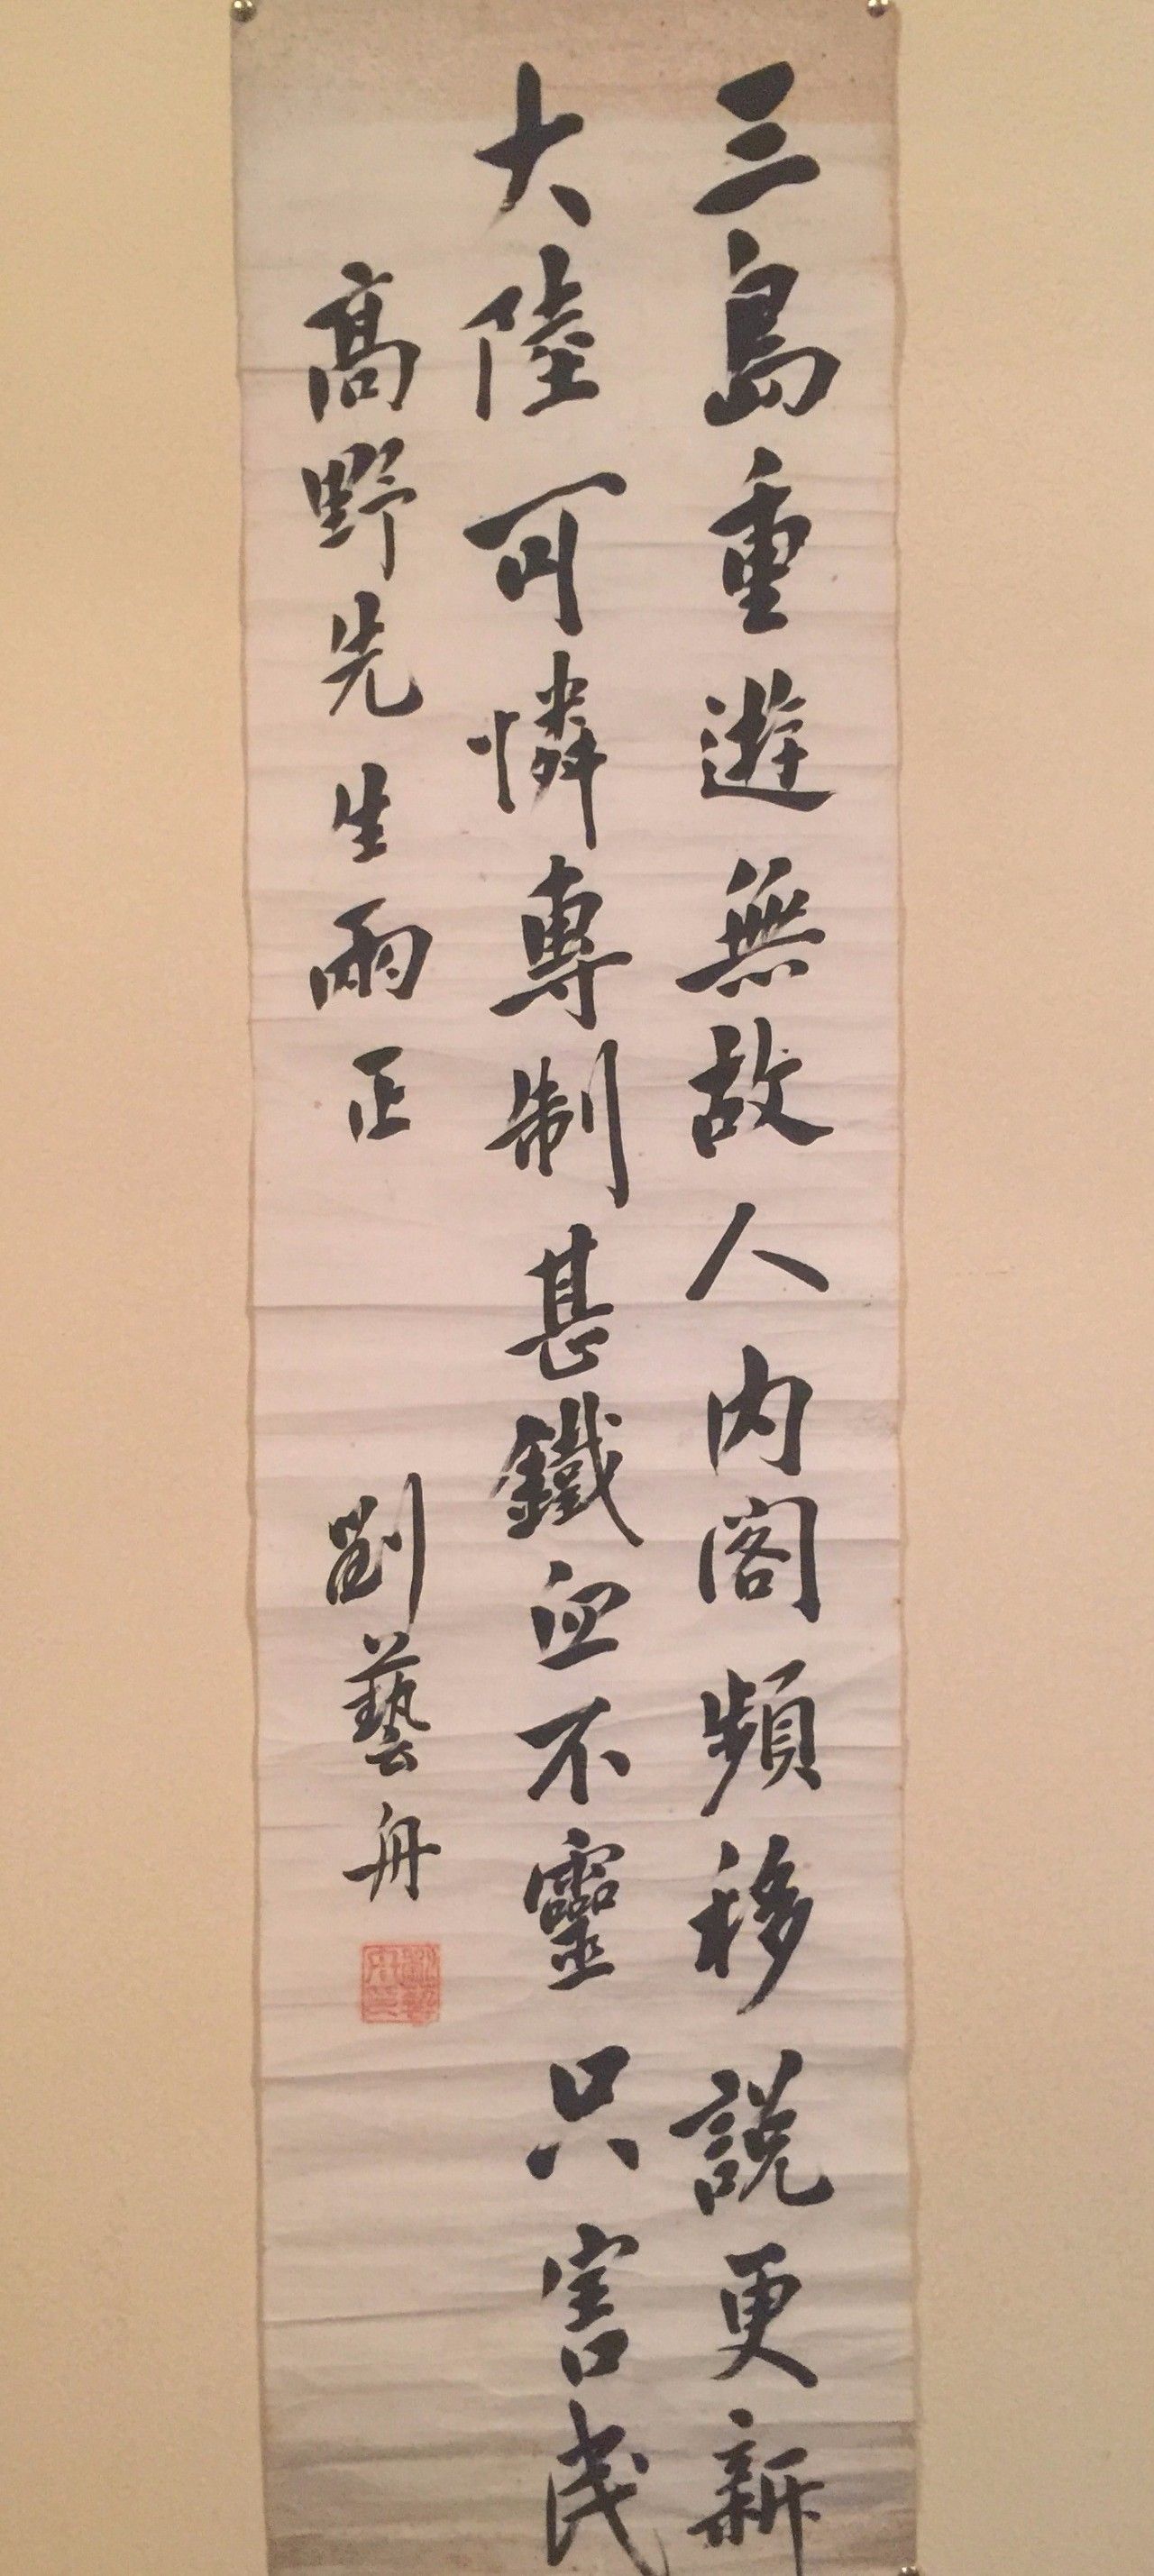 三島重遊無故人内閣頻移説更新
大陸可憐專制甚鐵血不靈只害民
髙野先生兩正
劉藝舟
劉藝舟印